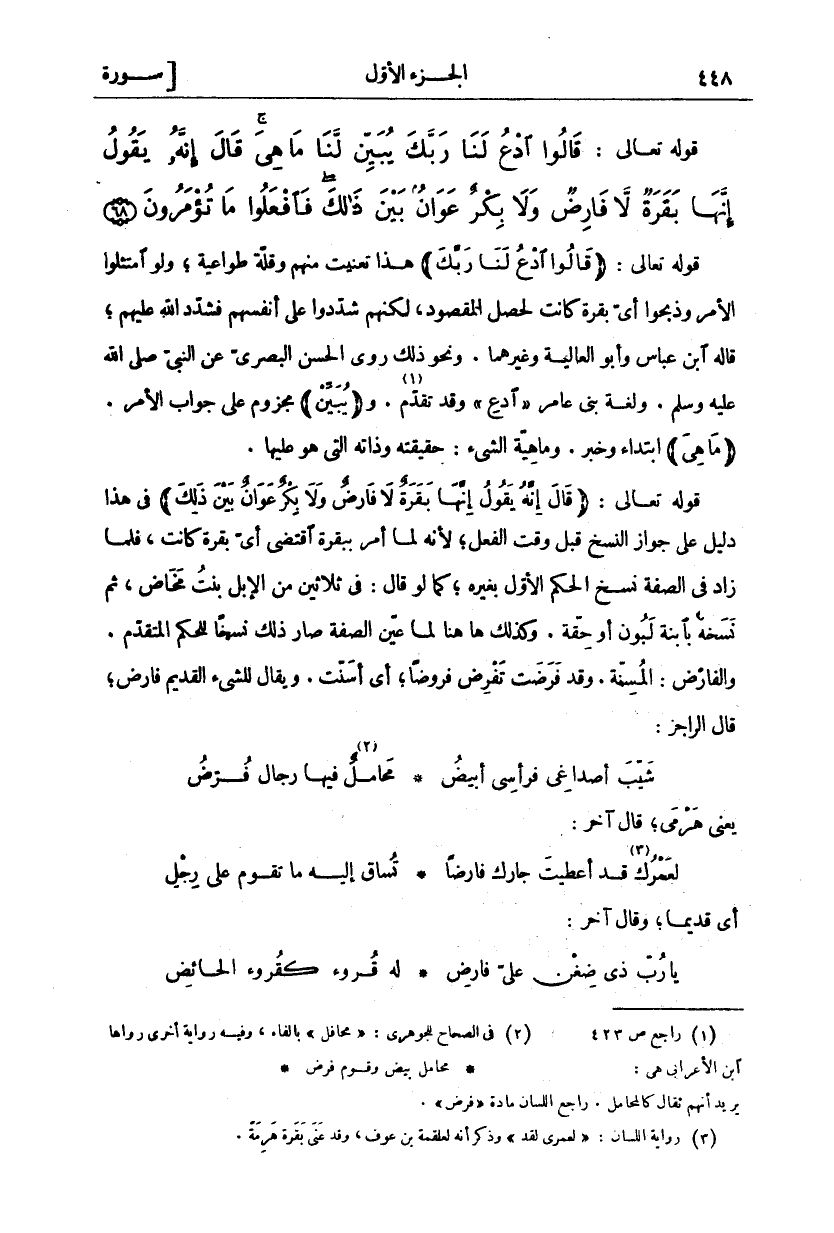 ٤٤٨ الجـزء الأوّل [ سـورة
قوله تعـالى : قَالُوا ٱدْعُ لَنَا رَبَّكَ يُبَيِّن لَّنَا مَا هِىَ ۚ قَالَ إِنَّهُۥ يَقُولُ
إِنَّهَا بَقَرَةٌ لَّا فَارِضٌ وَلَا بِكْرٌ عَوَانٌۢ بَيْنَ ذَٰلِكَ ۖ فَٱفْعَلُوا مَا تُؤْمَرُونَ ﴿٦٨﴾
قوله تعالى : ﴿قَالُوا ٱدْعُ لَنَا رَبَّكَ﴾ هـذا تعنيت منهم وقلّة طواعية ؛ ولو ٱمتثلوا
الأمر وذبحوا أىّ بقرة كانت لحصل المقصود، لكنهم شدّدوا على أنفسهم فشدّد الله عليهم ؛
قاله ٱبن عباس وأبو العاليـة وغيرهما . ونحو ذلك روى الحسن البصرىّ عن النبىّ صلى الله
عليه وسلم . ولغـة بنى عامر «ٱدعِ» وقد تقدّم (١) . و﴿يُبَيِّنْ﴾ مجزوم على جواب الأمر .
﴿مَا هِىَ﴾ ابتداء وخبر . وماهيّة الشىء : حقيقته وذاته التى هو عليها .
قوله تعـالى : ﴿قَالَ إِنَّهُ يَقُولُ إِنَّهَا بَقَرَةٌ لَا فَارِضٌ وَلَا بِكْرٌ عَوَانٌ بَيْنَ ذَلِكَ﴾ فى هذا
دليل على جواز النسخ قبل وقت الفعل؛ لأنه لمـا أمر ببقرة ٱقتضى أىّ بقرة كانت ، فلمـا
زاد فى الصفة نسـخ الحكم الأوّل بغيره ؛ كما لو قال : فى ثلاثين من الإبل بنتُ مَخَاض ، ثم
نَسَخَه بٱبنة لَبُون أو حِقّة . وكذلك ها هنا لمـا عيّن الصفة صار ذلك نسخًا للحكم المتقدّم .
والفارِض : المُسِنّة . وقد فَرَضَت تَفْرِض فروضًا؛ أى أسَنّت . ويقال للشىء القديم فارض؛
قال الراجز :
شَيَّبَ أصداغى فرأسى أبيضُ * مَحَامِلٌ (٢) فيهـا رجال فُـرَّضُ
يعنى هَرْمَى؛ قال آخر :
لعَمْرُك (٣) قـد أعطيتَ جارك فارضًا * تُساق إليـه ما تقـوم على رِجْلِ
أى قديمـا؛ وقال آخر :
يا رُبّ ذى ضِغْنٍ علىّ فارِض * له قُـروء كقُروء الحـائض
(١) راجع ص ٤٢٣ (٢) فى الصحاح للجوهرى : « محافل » بالفاء ، وفيـه رواية أخرى رواها
ٱبن الأعرابى هى : * محامل بيض وقـوم فرض *
يريد أنهم ثقال كالمحامل . راجع اللسان مادة «فرض» .
(٣) رواية اللسان : « لعمرى لقد » وذكر أنه لعلقمة بن عوف ، وقد عَنَى بَقَرة هَرِمَةً .